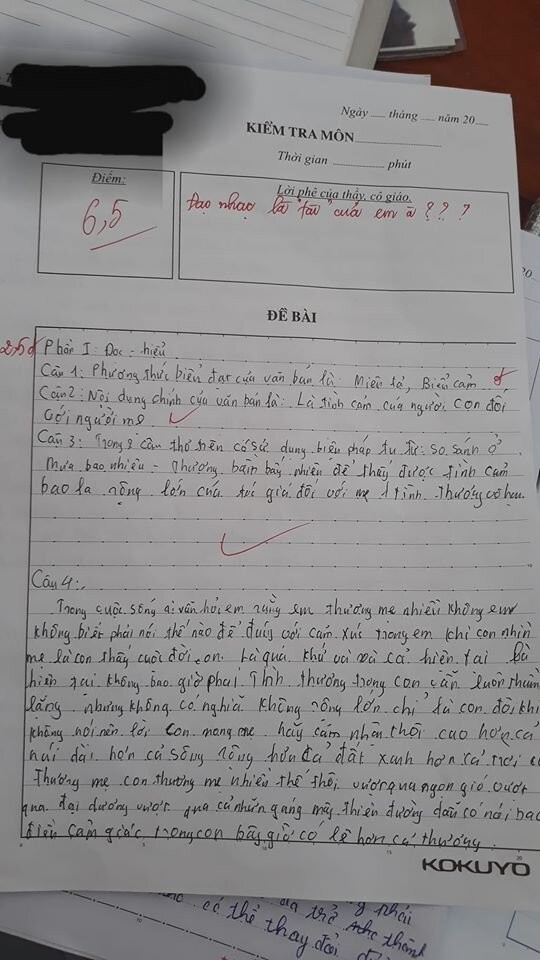 Ngày ___ tháng ___ năm 20___
KIỂM TRA MÔN
Thời gian __________ phút
Điểm:
6,5
Lời phê của thầy, cô giáo.
Đạo nhạc là "tài" của em à ? ? ?
ĐỀ BÀI
2,5đ
Phần I: Đọc - hiểu
Câu 1: Phương thức biểu đạt của văn bản là: Miêu tả, Biểu cảm
Câu 2: Nội dung chính của văn bản là: Là tình cảm của người con đối
với người mẹ
Câu 3: Trong 2 câu thơ trên có sử dụng biện pháp tu từ: so sánh ở
Mưa bao nhiêu - Thương bấy nhiên để thấy được tình cảm
bao la rộng lớn của tác giả đối với mẹ 1 tình thương vô hạn
Câu 4:
Trong cuộc sống ai vẫn hỏi em rằng em thương mẹ nhiều không em
không biết phải nói thế nào để đúng với cảm xúc trong em khi con nhìn
mẹ là con thấy cuộc đời con. Là quá khứ và và cả hiện tại là
hiện tại không bao giờ phai. Tình thương trong con vẫn luôn thầm
lặng nhưng không có nghĩa không rộng lớn chỉ là con đôi khi
không nói nên lời con mong mẹ hãy cảm nhận thôi cao hơn cả
núi dài hơn cả sông rộng hơn cả đất xanh hơn cả trời
Thương mẹ con thương mẹ nhiều thế thôi vượt qua ngọn gió vượt
qua đại dương vượt qua cả những gang mây thiên đường dẫu có nói bao
điều cảm giác trong con bây giờ có lẽ hơn cả thương.
KOKUYO
phải
trẻ thành
có thể thay đổi